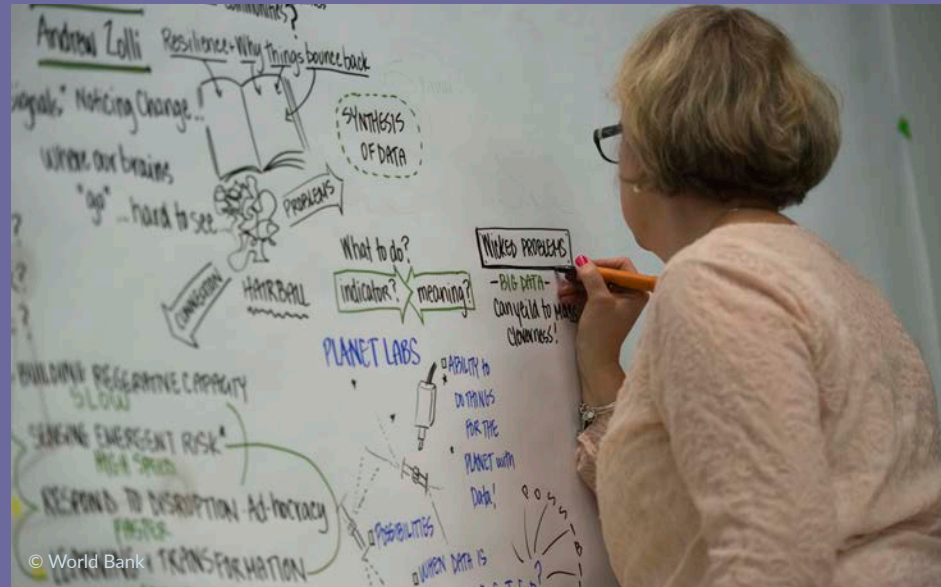 communities?
Andrew Zolli
Resilience + Why things bounce back
signals" Noticing Change...
where our brains
"go"... hard to see...
SYNTHESIS
OF DATA
PROBLEMS
CONNECTION
HAIRBALL
What to do?
indicator?
meaning?
WICKED PROBLEMS
-BIG DATA-
can yeild to
cleverness!
PLANET LABS
ABILITY to
DO THINGS
FOR THE
PLANET with
Data!
POSSIBILITIES
WHEN DATA IS
POSSIB
BUILDING REGERATIVE CAPACITY
SLOW
SENSING EMERGENT RISK
HIGH SPEED
RESPOND TO DISRUPTION Ad-hocracy
FASTER
TRANSFORMATION
© World Bank